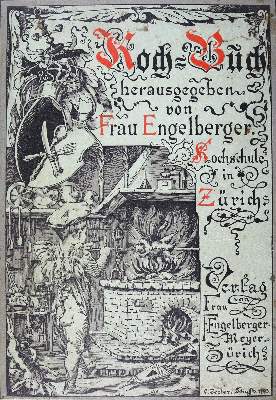 Koch=Buch
herausgegeben
von
Frau Engelberger.
Kochschule
in
Zürich
Verlag
von
Frau
Engelberger
Meyer
Zürich